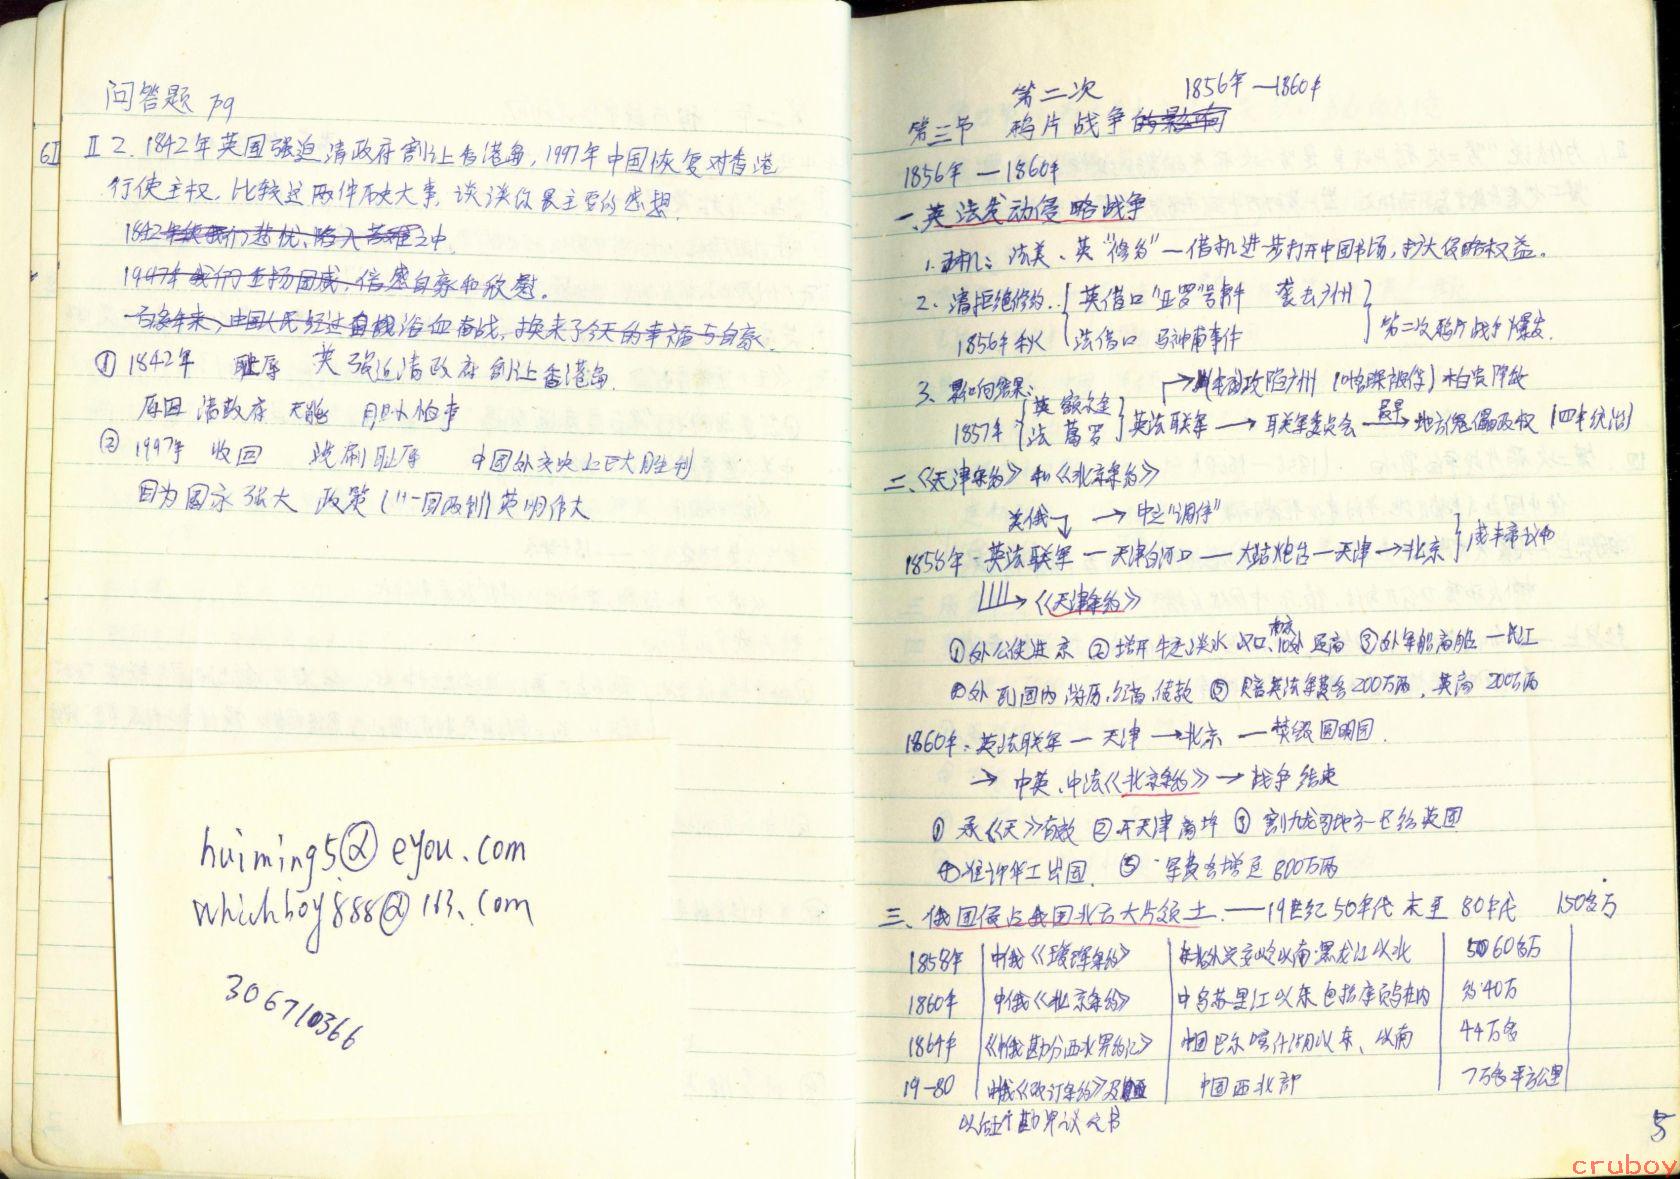 问答题 P9
6II
II 2. 1842年英国强迫清政府割让香港岛,1997年中国恢复对香港
行使主权,比较这两件历史大事,谈谈你最主要的感想.
1997年我们 国威,倍感自豪和欣慰.
百多年来,中国人民经过 浴血奋战,换来了今天的幸福与自豪.
① 1842年 耻辱 英强迫清政府割让香港岛.
原因 清政府 无能 胆小怕事
② 1997年 收回 洗刷耻辱 中国外交史上巨大胜利
因为国家强大 政策("一国两制)英明伟大
huiming5@eyou.com
whichboy888@163.com
306710366
第二次 1856年—1860年
第三节 鸦片战争的影响
1856年—1860年
一.英法发动侵略战争
1. 法美、英"修约"—借机进一步打开中国市场,扩大侵略权益。
2. 清拒绝修约. 英借口"亚罗"号事件 袭击广州
1856年秋 法借口 马神甫事件 第二次鸦片战争爆发.
3. 结果: 攻陷广州 柏贵降敌
1857年 英 额尔金 法 葛罗 英法联军→联军委员会→地方傀儡政权(四年统治)
二、《天津条约》和《北京条约》
美俄 → 中立"调停"
1858年.英法联军—天津白河口—大沽炮台—天津→北京
→《天津条约》
①外公使进京 ②增开牛庄、淡水 汉口、南京 ③外军船商船 —长江
④外到国内游历、经商、传教 ⑤赔英法军费各200万两,英商200万两
1860年.英法联军—天津→北京—焚毁圆明园.
→ 中英、中法《北京条约》→战争结束
①承《天》有效 ②开天津商埠 ③割九龙司地方一区给英国
④准许华工出国. ⑤军费各增至800万两
三、俄国侵占我国北方大片领土.——19世纪50年代末至80年代 150多万
1858年 中俄《瑷珲条约》 外兴安岭以南黑龙江以北 60多万
1860年 中俄《北京条约》 中乌苏里江以东包括库页岛在内 约40万
1864年 《中俄勘分西北界约记》 中国巴尔喀什湖以东、以南 44万多
19-80 中俄《改订条约》及 中国西北部 7万多平方公里
以后五个勘界议定书
5
cruboy